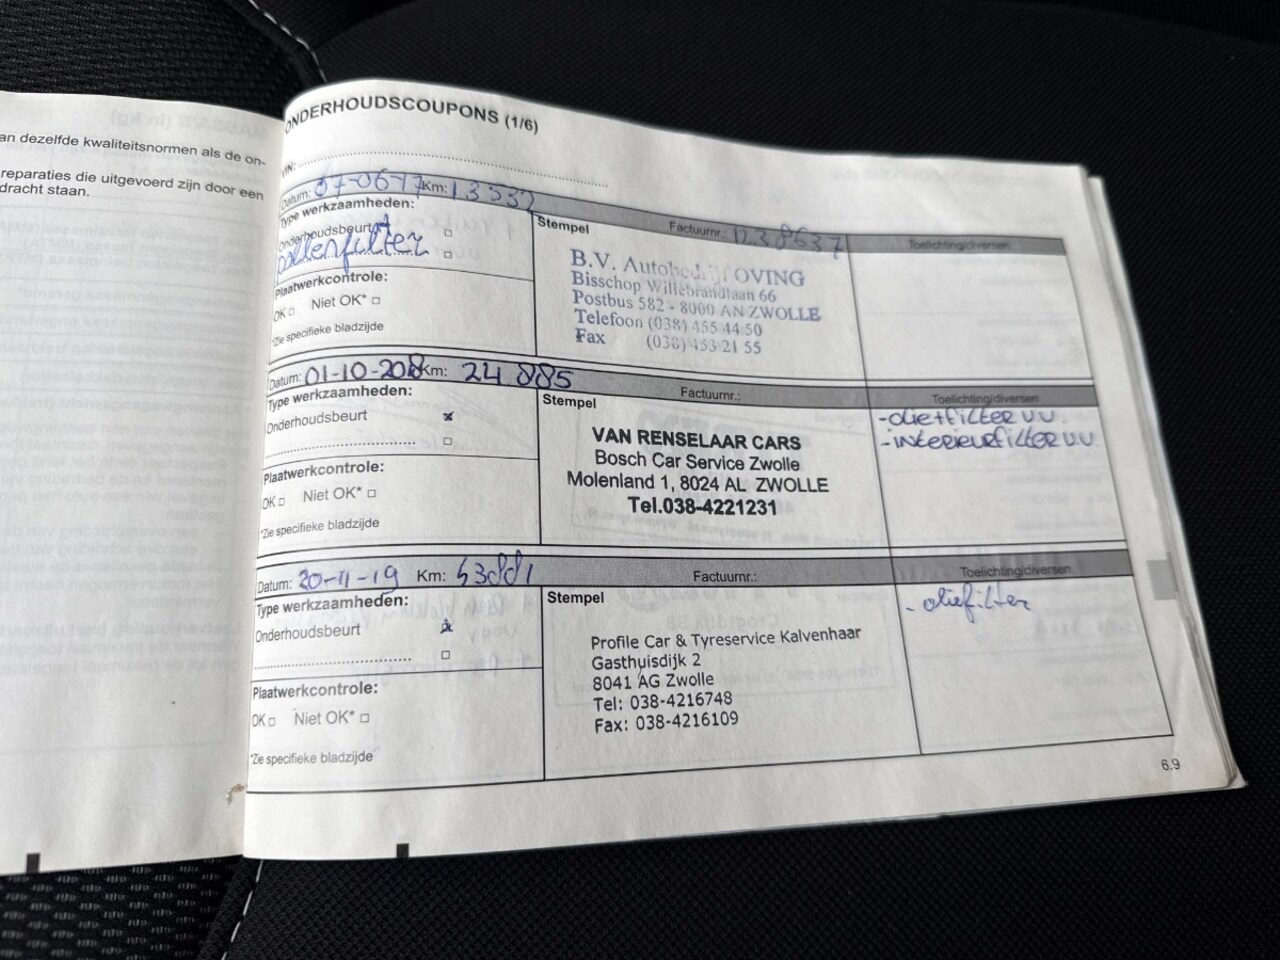 an dezelfde kwaliteitsnormen als de on-
reparaties die uitgevoerd zijn door een
dracht staan.
ONDERHOUDSCOUPONS (1/6)
VIN:
Datum: 07-06-17 Km: 13532
Type werkzaamheden:
Onderhoudsbeurt
pollenfilter
Plaatwerkcontrole:
OK Niet OK*
*Zie specifieke bladzijde
Stempel
Factuurnr.:
B.V. Autobedrijf OVING
Bisschop Willebrandlaan 66
Postbus 582 - 8000 AN ZWOLLE
Telefoon (038) 455 44 50
Fax (038) 453 21 55
Toelichting/diversen
Datum: 01-10-2018 Km: 24 885
Type werkzaamheden:
Onderhoudsbeurt x
Plaatwerkcontrole:
OK Niet OK*
*Zie specifieke bladzijde
Stempel
Factuurnr.:
VAN RENSELAAR CARS
Bosch Car Service Zwolle
Molenland 1, 8024 AL ZWOLLE
Tel.038-4221231
Toelichting/diversen
- oliefilter v.v.
- interieurfilter v.v.
Datum: 20-11-19 Km:
Type werkzaamheden:
Onderhoudsbeurt x
Plaatwerkcontrole:
OK Niet OK*
*Zie specifieke bladzijde
Stempel
Factuurnr.:
Profile Car & Tyreservice Kalvenhaar
Gasthuisdijk 2
8041 AG Zwolle
Tel: 038-4216748
Fax: 038-4216109
Toelichting/diversen
- oliefilter
6.9